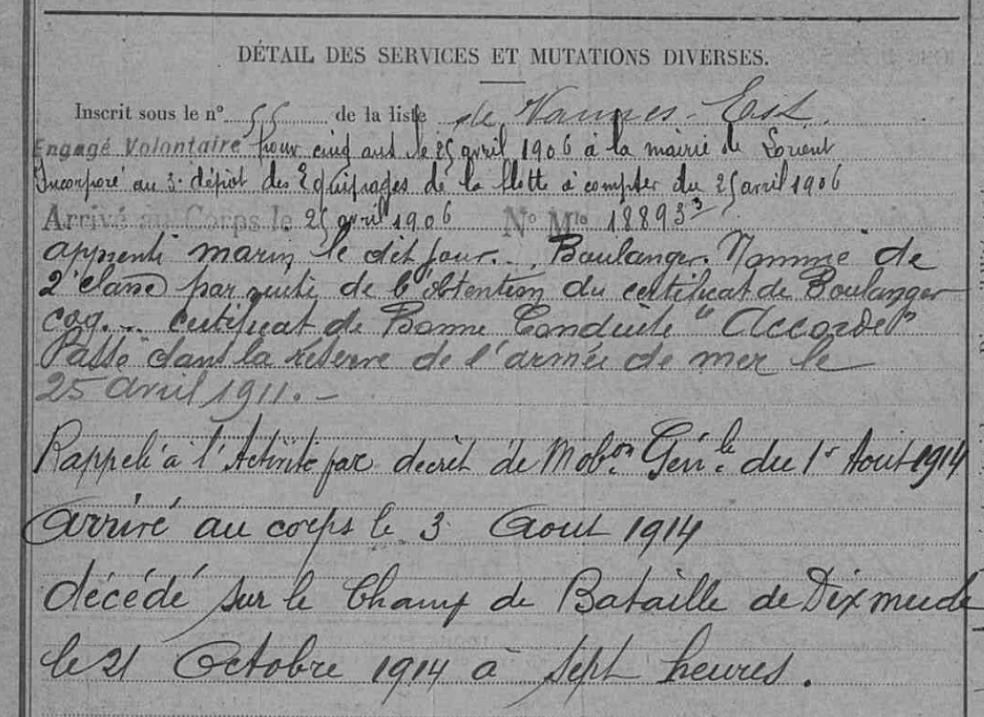 DÉTAIL DES SERVICES ET MUTATIONS DIVERSES.
Inscrit sous le n° 55 de la liste de Vannes-Est.
Engagé Volontaire pour cinq ans le 25 avril 1906 à la mairie de Lorient
Incorporé au 3e dépôt des Equipages de la flotte à compter du 25 avril 1906
Arrivé au Corps le 25 avril 1906 No Mle 18893³
apprenti marin le dit jour. Boulanger. Nommé de
2e classe par suite de l'obtention du certificat de Boulanger
coq. Certificat de Bonne Conduite "Accordé"
Passé dans la réserve de l'armée de mer le
25 avril 1911. -
Rappelé à l'Activité par décrèt de Mobon Génle du 1er Aout 1914
Arrivé au corps le 3 Aout 1914
décédé sur le Champ de Bataille de Dixmude
le 21 Octobre 1914 à sept heures.